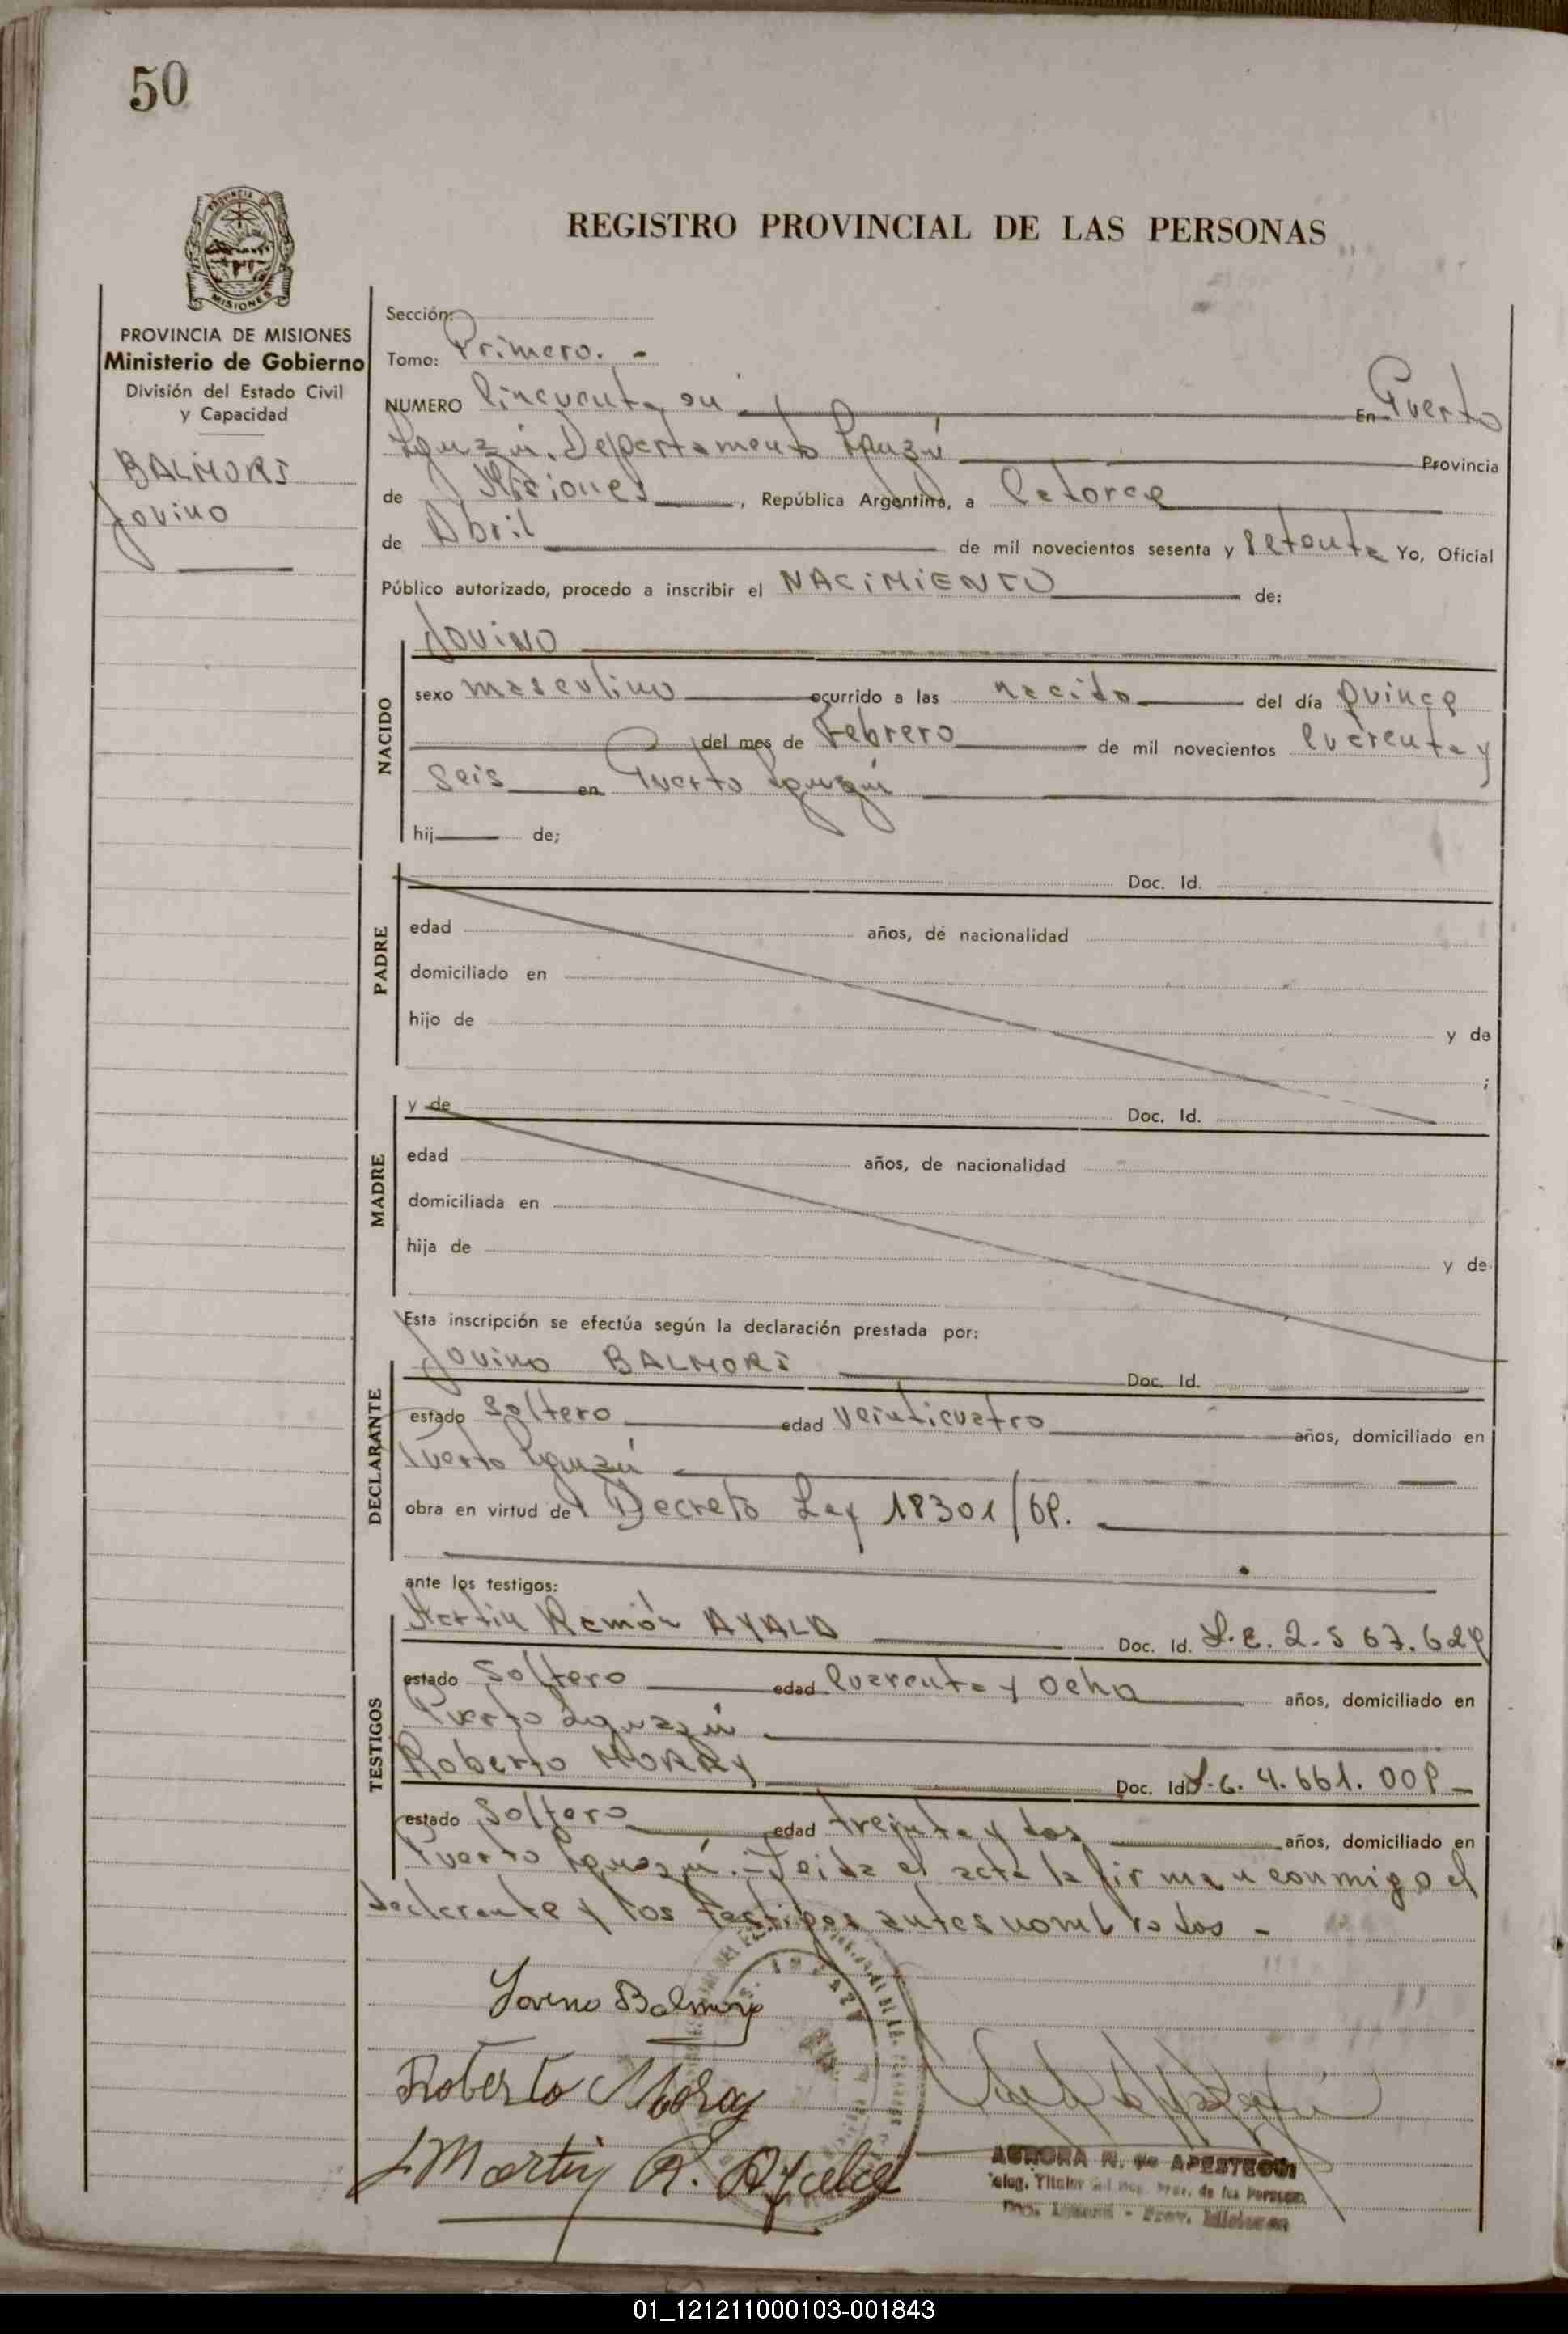 50
PROVINCIA DE
MISIONES
PROVINCIA DE MISIONES
Ministerio de Gobierno
División del Estado Civil
y Capacidad
BALMORI
Jovino
REGISTRO PROVINCIAL DE LAS PERSONAS
Sección:
Tomo: Primero. -
NUMERO Cincuenta En Puerto
Iguazú. Departamento Iguazú Provincia
de Misiones, República Argentina, a Catorce
de Abril de mil novecientos sesenta y setenta Yo, Oficial
Público autorizado, procedo a inscribir el NACIMIENTO de:
NACIDO
Jovino
sexo masculino ocurrido a las nacido del día quince
del mes de Febrero de mil novecientos cuarenta y
seis en Puerto Iguazú
hij de;
PADRE
Doc. Id.
edad años, de nacionalidad
domiciliado en
hijo de y de
;
MADRE
y de Doc. Id.
edad años, de nacionalidad
domiciliada en
hija de y de
Esta inscripción se efectúa según la declaración prestada por:
DECLARANTE
Jovino BALMORI Doc. Id.
estado soltero edad veinticuatro años, domiciliado en
Puerto Iguazú
obra en virtud de Decreto Ley 18301/69.
ante los testigos:
TESTIGOS
Martin Ramón AYALA Doc. Id. L.E. 2.567.629
estado soltero edad cuarenta y ocho años, domiciliado en
Puerto Iguazú
Roberto MORAY Doc. Id. 4.661.009 -
estado soltero edad treinta y dos años, domiciliado en
Puerto Iguazú.- Leida el acta la firman conmigo el
declarante y los testigos antes nombrados -
Jovino Balmori
Roberto Moray
Martin R. Ayala
AURORA N. de APESTEGUI
Titular del Reg. Prov. de las Personas
Prov. Misiones
01_121211000103-001843